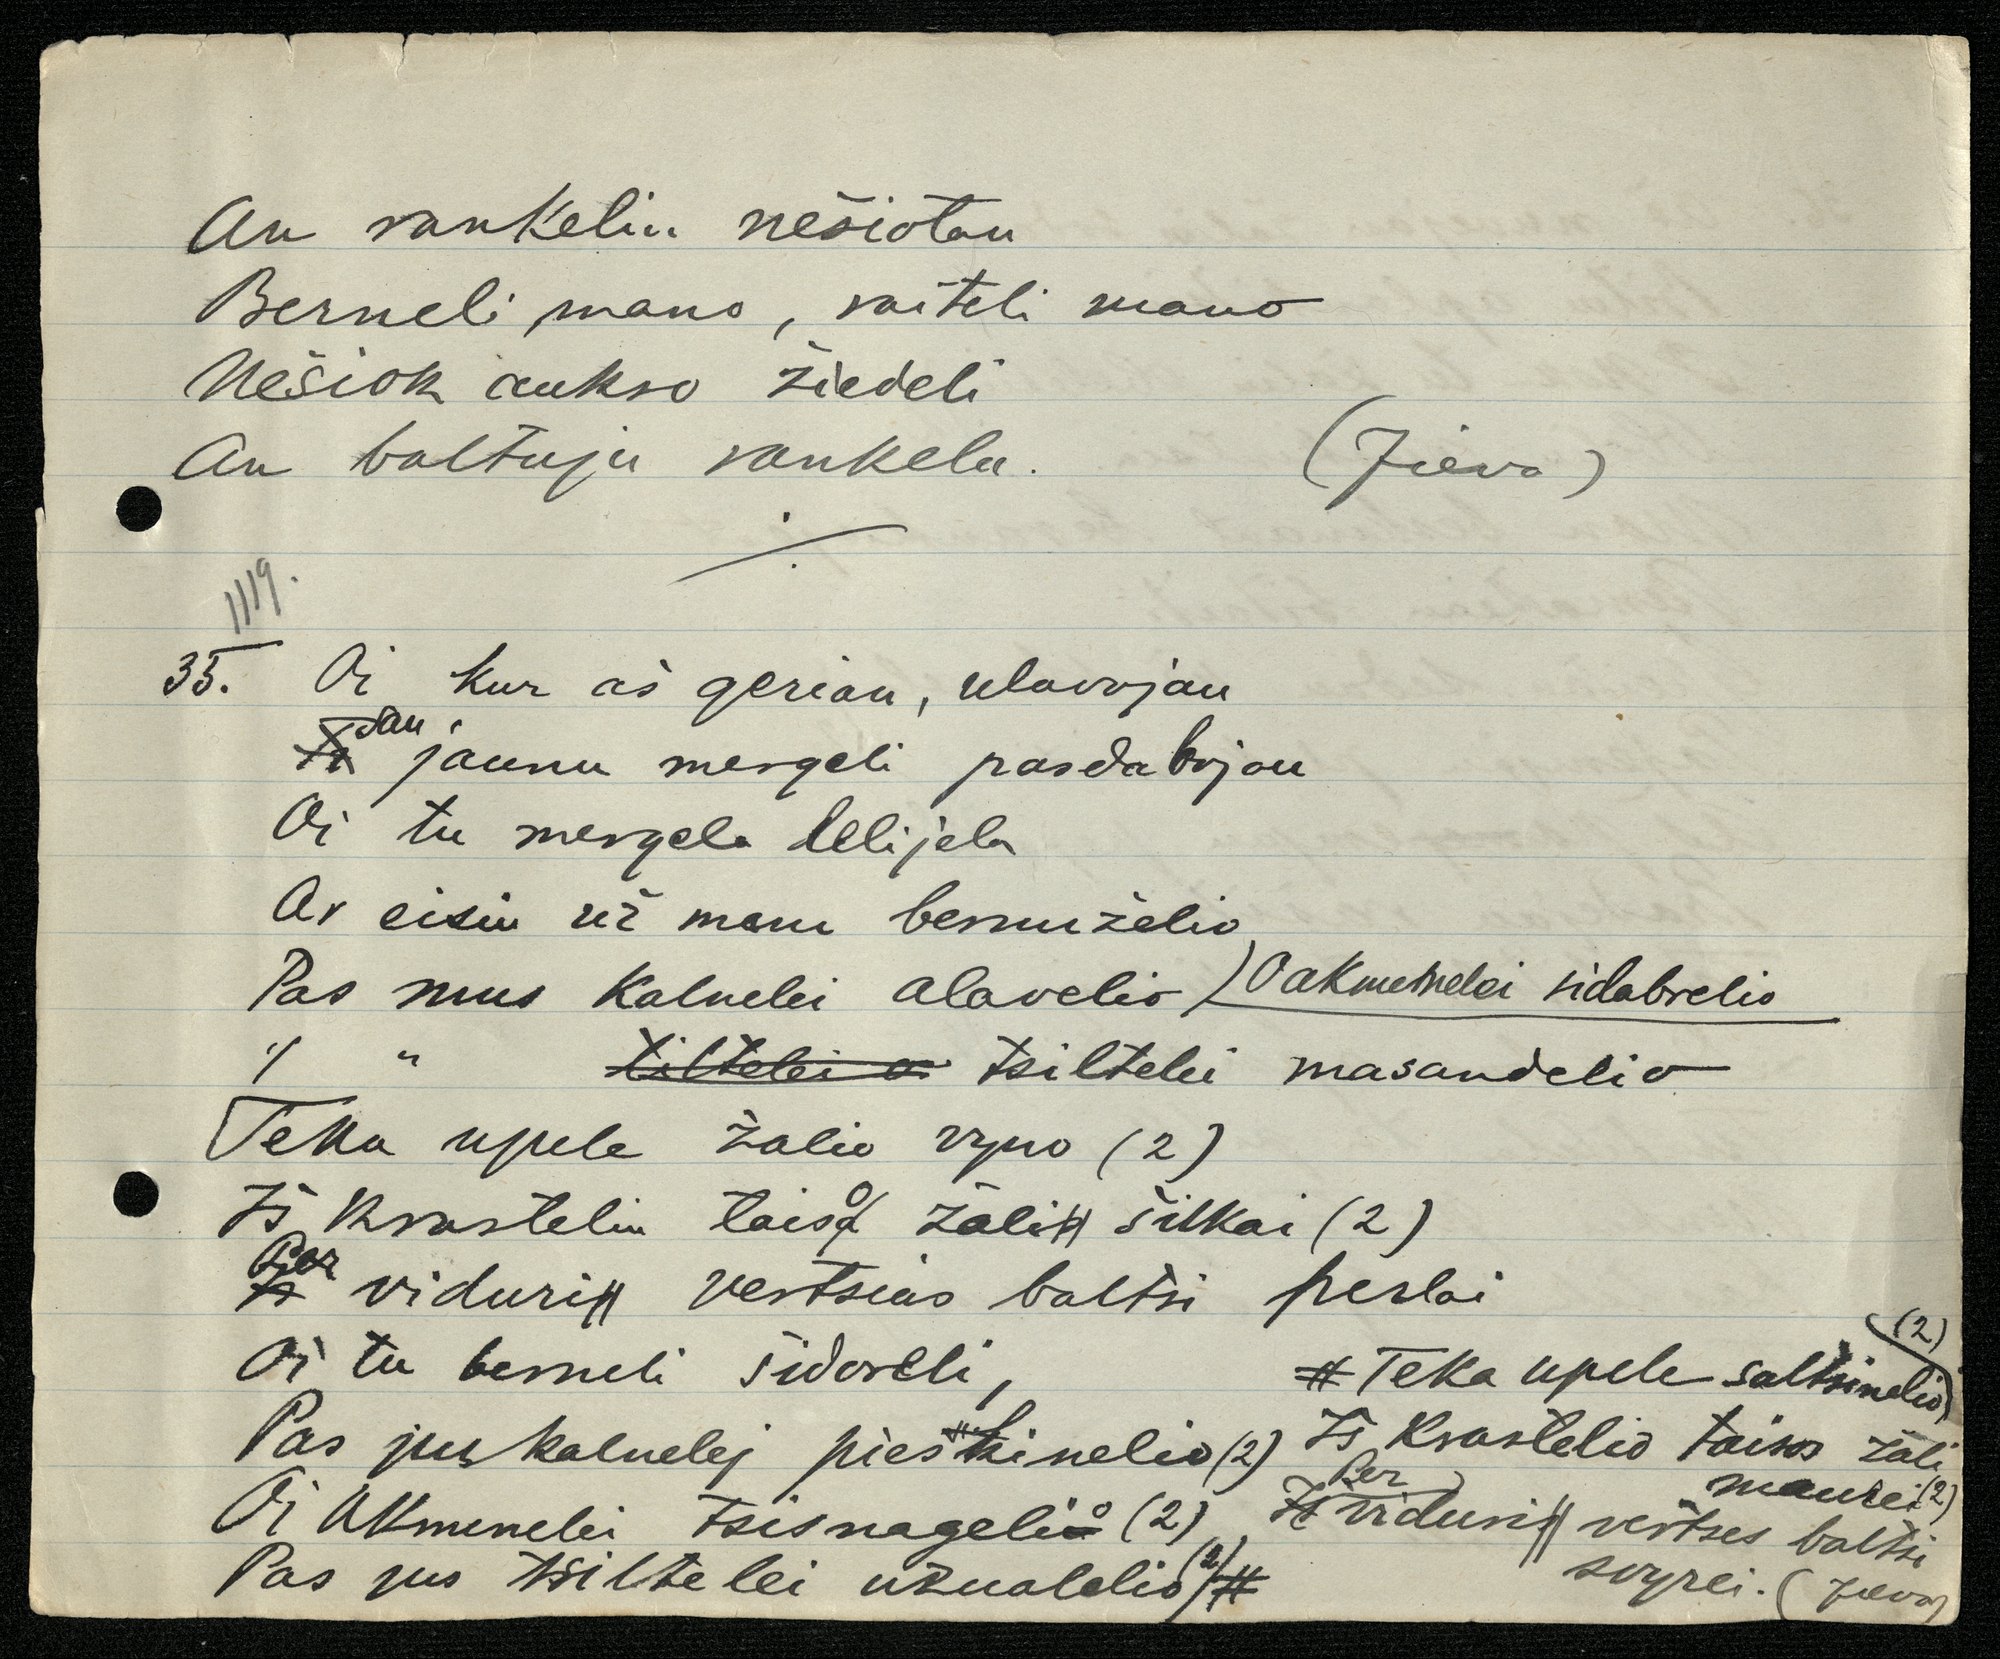 An rankeliu nešiotau
Berneli mano, raiteli mano
Nešiok aukso žiedeli
An baltuju rankelu.
(Jieva)
1119.
35. Oi kur aš geriau, ulavojau
Tan jaunu mergeli pasdabojau
Oi tu mergela lelijela
Ar eisiu už manu bernuželio
Pas mus kalnelei alavelio) O akmenelei sidabrelio
" " tiltelei o tsiltelei masandelio
Teka upele žalio vyno (2)
Iš krasteliu taiso žali šilkai (2)
Per viduri vertsias baltsi perlai
Oi tu berneli šidoreli,
Pas jus kalnelej pieskinelio (2)
Oi Akmenelei tsisnagelio (2)
Pas jus tsiltelei užualelio (2) #
# Teka upele saltsinelio (2)
Iš krastelio taisos žali
maurei (2)
Per viduri vertses baltsi
svyrei. (Jieva)